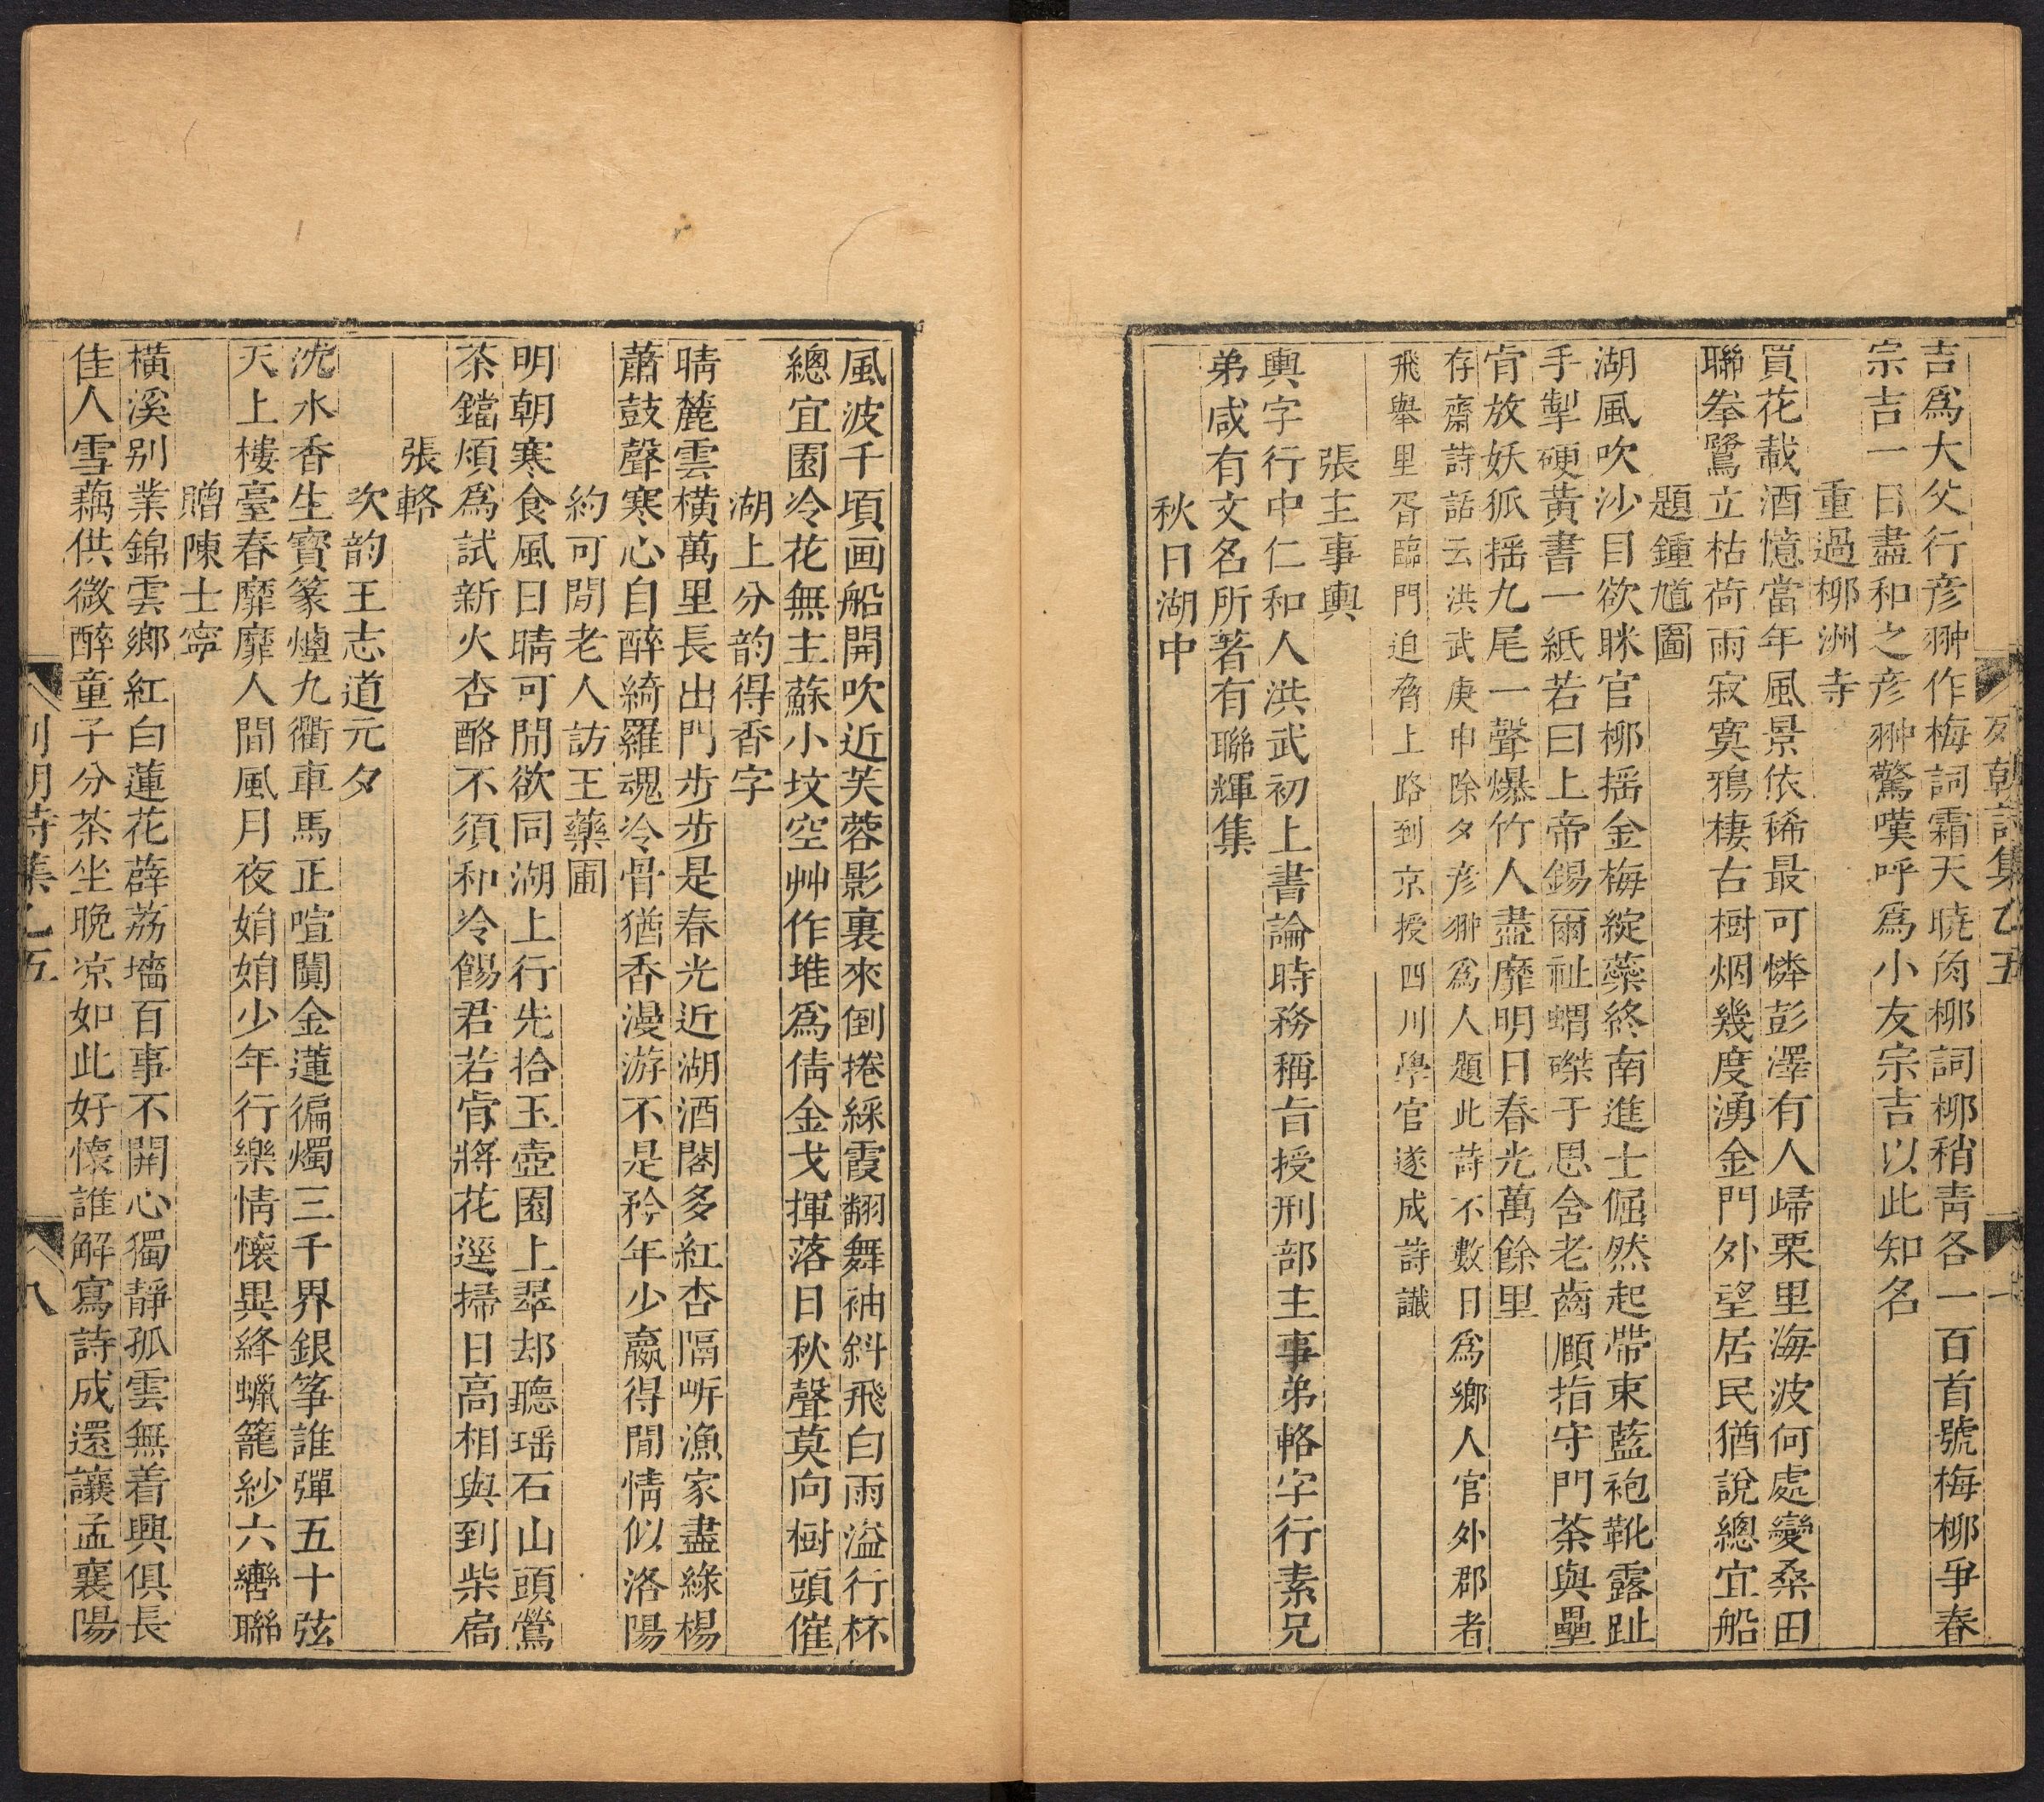 列朝詩集乙五
吉爲大父行彦翀作梅詞霜天曉角柳詞柳稍青各一百首號梅柳爭春
宗吉一日盡和之彦翀驚嘆呼爲小友宗吉以此知名
重過柳洲寺
買花載酒憶當年風景依稀最可憐彭澤有人歸栗里海波何處變桑田
聯拳鷺立枯荷雨寂寞鴉棲古樹烟幾度湧金門外望居民猶說總宜船
題鍾馗圖
湖風吹沙目欲眯官柳揺金梅綻蘂終南進士倔然起帶束藍袍靴露趾
手掣硬黃書一紙若曰上帝錫爾祉蝟磔于思含老齒頤指守門荼與壘
肯放妖狐揺九尾一聲爆竹人盡靡明日春光萬餘里
存齋詩話云洪武庚申除夕彦翀爲人題此詩不數日爲鄉人官外郡者
飛舉里胥臨門迫脅上路到京授四川學官遂成詩讖
張主事輿
輿字行中仁和人洪武初上書論時務稱旨授刑部主事弟輅字行素兄
弟咸有文名所著有聯輝集
秋日湖中
風波千頃画船開吹近芙蓉影裏來倒捲綵霞翻舞袖斜飛白雨溢行杯
總宜園冷花無主蘇小坟空艸作堆爲倩金戈揮落日秋聲莫向樹頭催
湖上分韵得香字
晴麓雲橫萬里長出門步步是春光近湖酒閣多紅杏隔岍漁家盡綠楊
蕭鼓聲寒心自醉綺羅魂冷骨猶香漫游不是矜年少嬴得閒情似洛陽
約可閒老人訪王藥圃
明朝寒食風日晴可閒欲同湖上行先拾玉壺園上翠却聽瑶石山頭鶯
茶鐺煩爲試新火杏酪不須和冷餳君若肯將花逕掃日高相與到柴扃
張輅
次韵王志道元夕
沈水香生寶篆爐九衢車馬正喧闐金蓮徧燭三千界銀箏誰彈五十弦
天上樓臺春靡靡人間風月夜娟娟少年行樂情懷異絳蠟籠紗六轡聯
贈陳士寧
橫溪别業錦雲鄉紅白蓮花薜荔墻百事不開心獨靜孤雲無着興俱長
佳人雪藕供微醉童子分茶坐晚凉如此好懷誰解寫詩成還讓孟襄陽
列朝詩集乙五
八